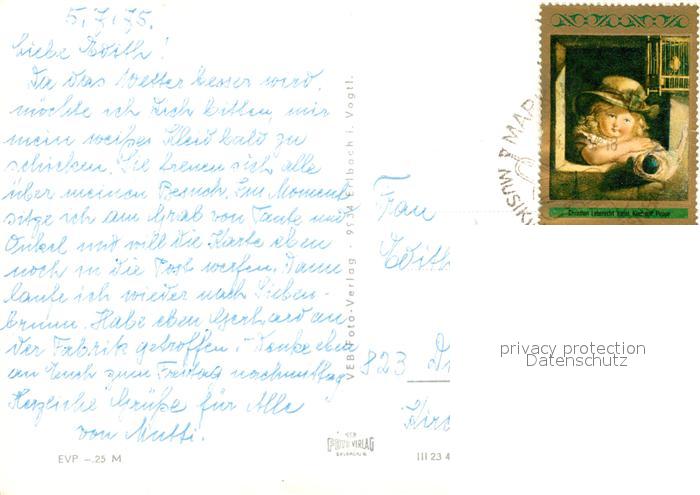 5.7.75.
Liebe Edith!
Da das Wetter besser wird,
möchte ich Dich bitten, mir
mein weißes Kleid bald zu
schicken. Sie freuen sich alle
über meinen Besuch. Im Moment
sitze ich am Grab von Tante und
Onkel und will die Karte eben
noch in die Post werfen. Dann
laufe ich wieder nach Sieben-
brunn. Habe eben Gerhard an
der Fabrik getroffen. - Denke eben
an Euch zum Freitag nachmittag.
Herzliche Grüße für Alle
von Mutti.
EVP -.25 M
VEB Foto-Verlag · 9534 Erlbach i. Vogtl.
VEB
FOTO VERLAG
ERLBACH
III 23 4
Frau
Edith
823
MUSIK
MAR
Christian Leberecht Vogel,
privacy protection
Datenschutz